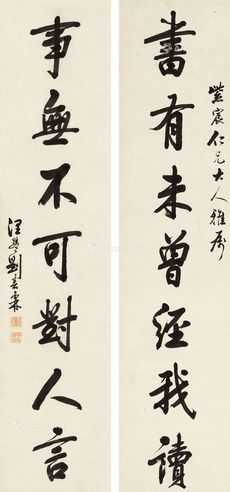 紫宸仁兄大人雅屬
書有未曾經我讀
事無不可對人言
潤琴劉春霖